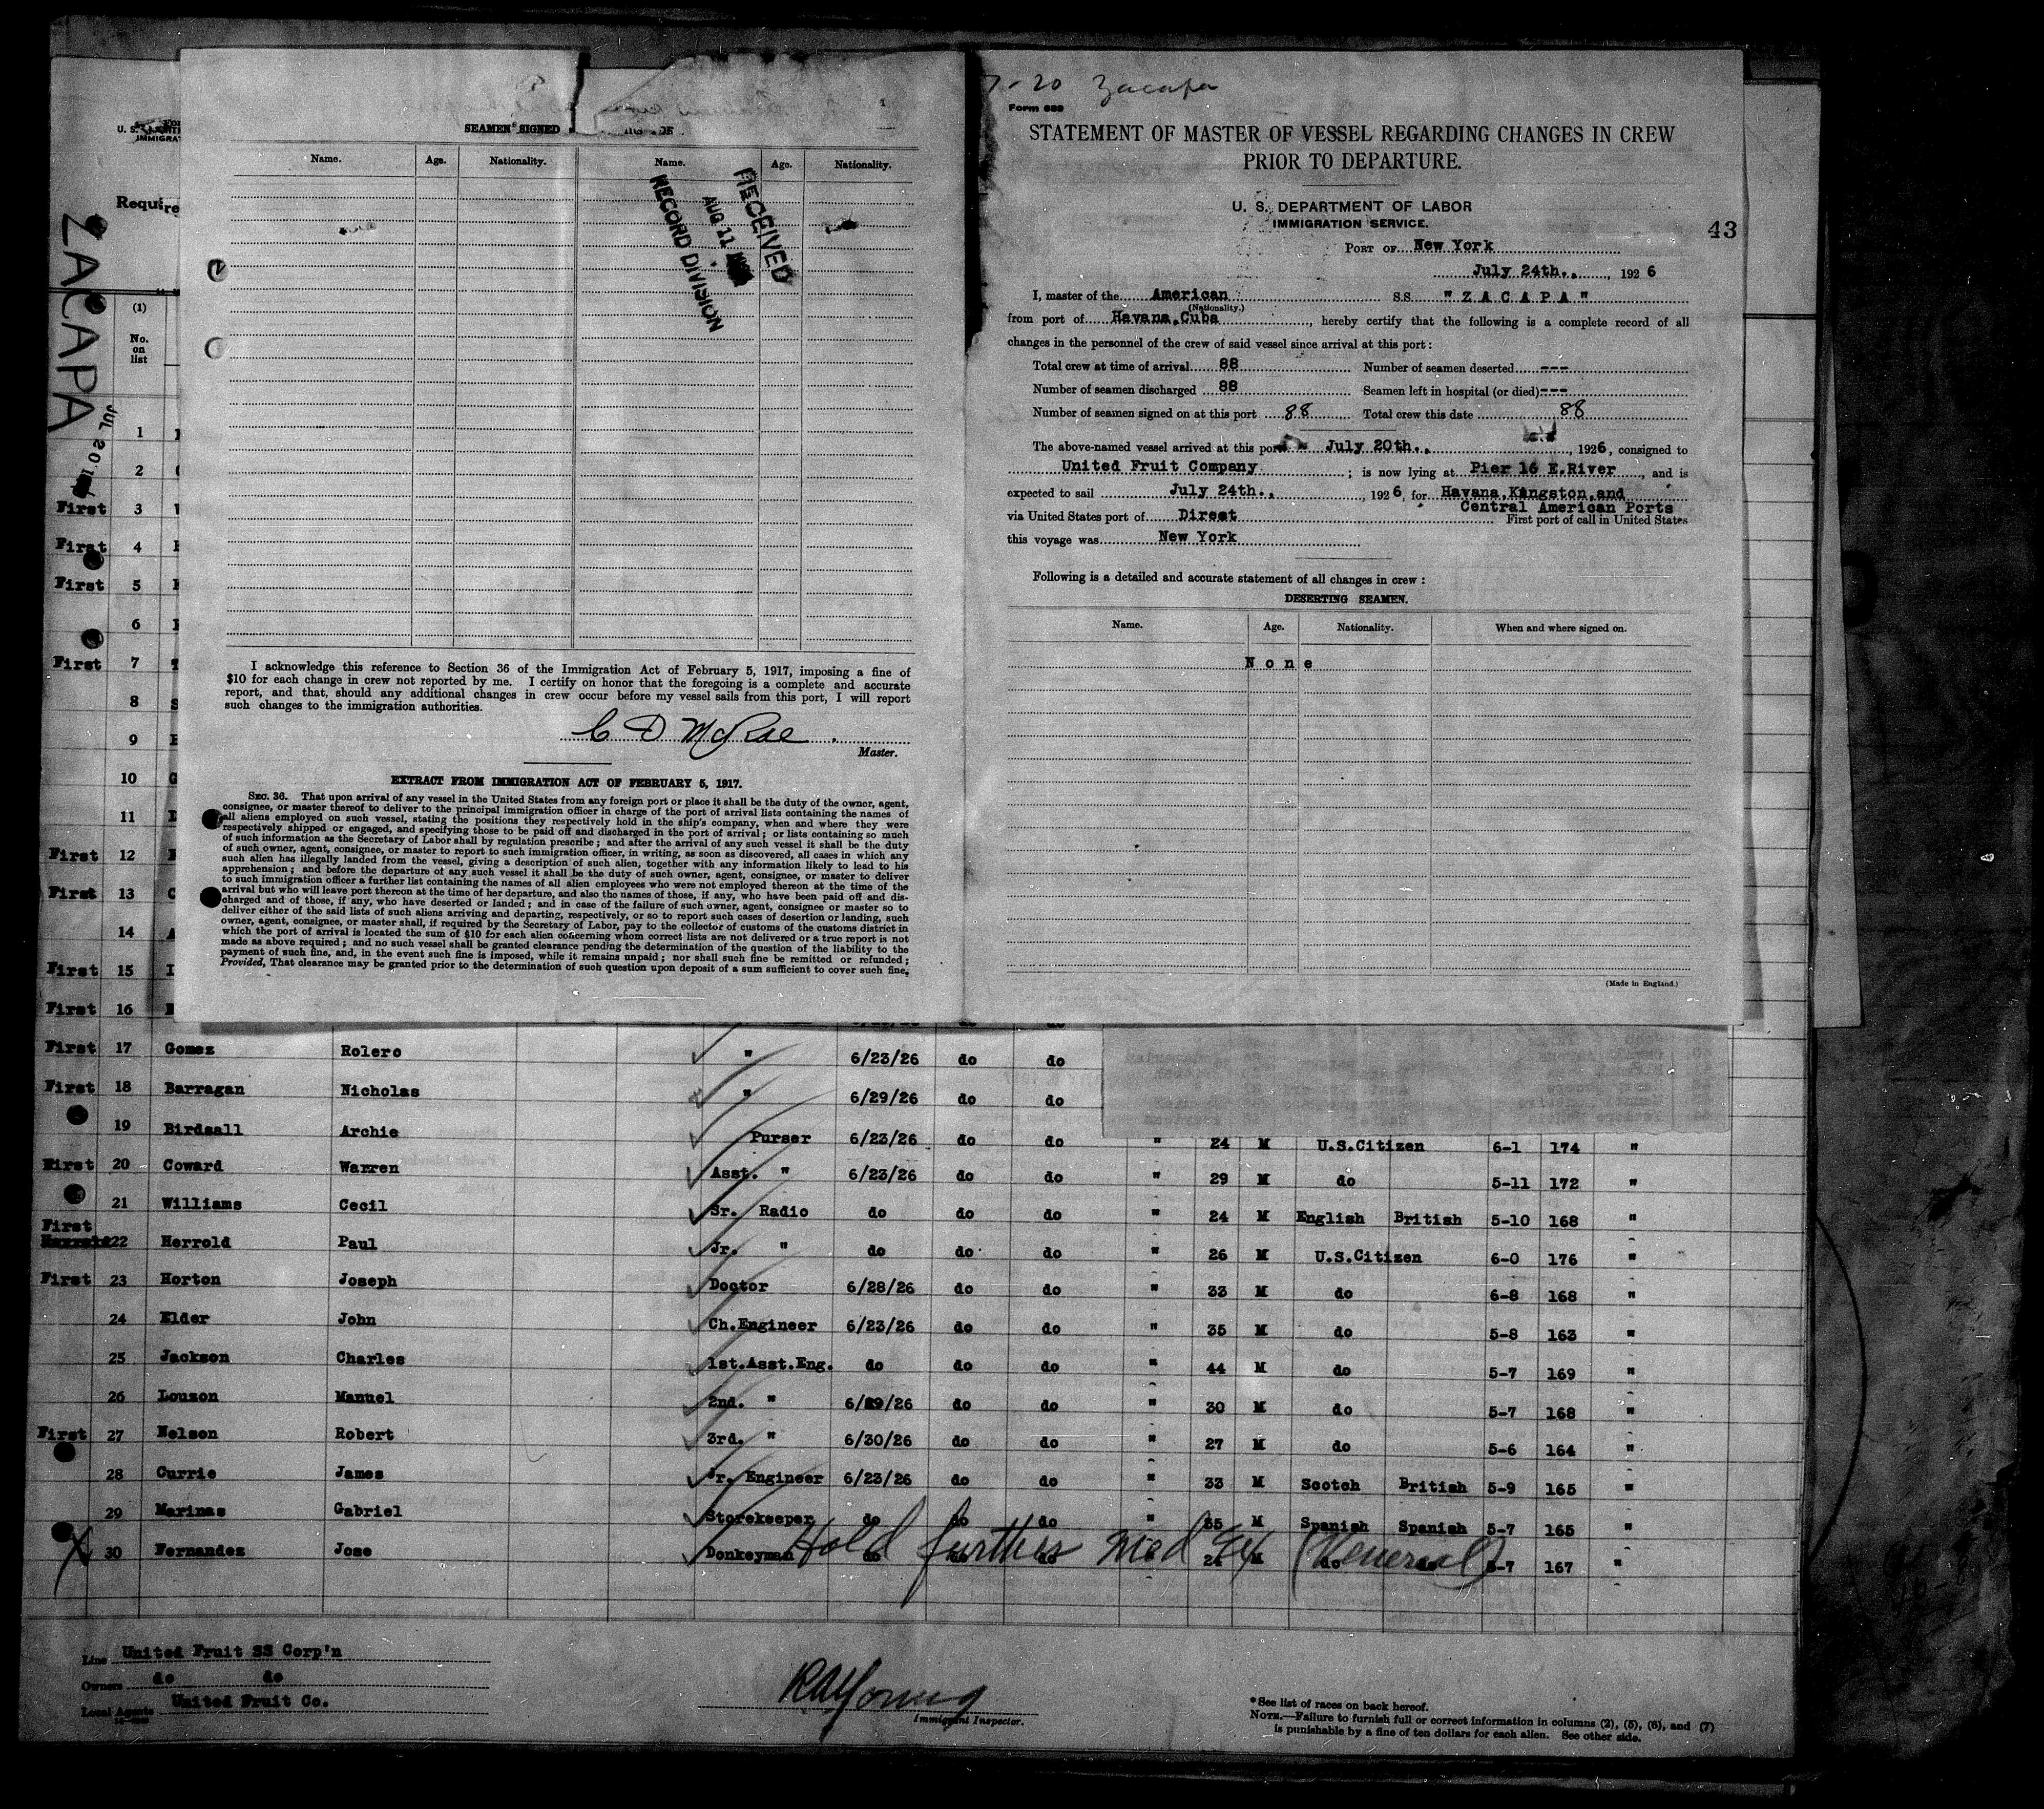 ZACAPA
JUL 20
U. S.
IMMIGRA
Require
(1)
No.
on
list
1
2
First 3
First 4
First 5
6
First 7
8
9
10
11
First 12
First 13
14
First 15
First 16
SEAMEN SIGNED
Name. Age. Nationality. Name. Age. Nationality.
RECEIVED
AUG 11
RECORD DIVISION
I acknowledge this reference to Section 36 of the Immigration Act of February 5, 1917, imposing a fine of
$10 for each change in crew not reported by me. I certify on honor that the foregoing is a complete and accurate
report, and that, should any additional changes in crew occur before my vessel sails from this port, I will report
such changes to the immigration authorities.
C D McRae
Master.
EXTRACT FROM IMMIGRATION ACT OF FEBRUARY 5, 1917.
SEC. 36. That upon arrival of any vessel in the United States from any foreign port or place it shall be the duty of the owner, agent,
consignee, or master thereof to deliver to the principal immigration officer in charge of the port of arrival lists containing the names of
all aliens employed on such vessel, stating the positions they respectively hold in the ship's company, when and where they were
respectively shipped or engaged, and specifying those to be paid off and discharged in the port of arrival; or lists containing so much
of such information as the Secretary of Labor shall by regulation prescribe; and after the arrival of any such vessel it shall be the duty
of such owner, agent, consignee, or master to report to such immigration officer, in writing, as soon as discovered, all cases in which any
such alien has illegally landed from the vessel, giving a description of such alien, together with any information likely to lead to his
apprehension; and before the departure of any such vessel it shall be the duty of such owner, agent, consignee, or master to deliver
to such immigration officer a further list containing the names of all alien employees who were not employed thereon at the time of the
arrival but who will leave port thereon at the time of her departure, and also the names of those, if any, who have been paid off and dis-
charged and of those, if any, who have deserted or landed; and in case of the failure of such owner, agent, consignee or master so to
deliver either of the said lists of such aliens arriving and departing, respectively, or so to report such cases of desertion or landing, such
owner, agent, consignee, or master shall, if required by the Secretary of Labor, pay to the collector of customs of the customs district in
which the port of arrival is located the sum of $10 for each alien concerning whom correct lists are not delivered or a true report is not
made as above required; and no such vessel shall be granted clearance pending the determination of the question of the liability to the
payment of such fine, and, in the event such fine is imposed, while it remains unpaid; nor shall such fine be remitted or refunded;
Provided, That clearance may be granted prior to the determination of such question upon deposit of a sum sufficient to cover such fine.
7-20 Zacapa
Form 689
STATEMENT OF MASTER OF VESSEL REGARDING CHANGES IN CREW
PRIOR TO DEPARTURE.
U. S. DEPARTMENT OF LABOR
IMMIGRATION SERVICE.
43
PORT OF New York
July 24th., 1926
I, master of the American SS. "ZACAPA"
(Nationality.)
from port of Havana,Cuba, hereby certify that the following is a complete record of all
changes in the personnel of the crew of said vessel since arrival at this port:
Total crew at time of arrival 88 Number of seamen deserted ---
Number of seamen discharged 88 Seamen left in hospital (or died) ---
Number of seamen signed on at this port 88 Total crew this date 88
The above-named vessel arrived at this port July 20th., 1926, consigned to
United Fruit Company; is now lying at Pier 16 E.River, and is
expected to sail July 24th., 1926, for Havana,Kingston,and
Central American Ports
via United States port of Direct First port of call in United States
this voyage was New York
Following is a detailed and accurate statement of all changes in crew:
DESERTING SEAMEN.
Name. Age. Nationality. When and where signed on.
None
(Made in England.)
First 17 Gomez Rolero " 6/23/26 do do
First 18 Barragan Nicholas " 6/29/26 do do
19 Birdsall Archie Purser 6/23/26 do do " 24 M U.S.Citizen 6-1 174 "
First 20 Coward Warren Asst. " 6/23/26 do do " 29 M do 5-11 172 "
21 Williams Cecil Sr. Radio do do do " 24 M English British 5-10 168 "
First 22 Herrold Paul Jr. " do do do " 26 M U.S.Citizen 6-0 176 "
First 23 Horton Joseph Doctor 6/28/26 do do " 33 M do 6-8 168 "
24 Elder John Ch.Engineer 6/23/26 do do " 35 M do 5-8 163 "
25 Jackson Charles 1st.Asst.Eng. do do do " 44 M do 5-7 169 "
26 Louzon Manuel 2nd. " 6/29/26 do do " 30 M do 5-7 168 "
First 27 Nelson Robert 3rd. " 6/30/26 do do " 27 M do 5-6 164 "
28 Currie James Jr. Engineer 6/23/26 do do " 33 M Scotch British 5-9 165 "
29 Marinas Gabriel Storekeeper do do do " 35 M Spanish Spanish 5-7 165 "
X 30 Fernandez Jose Donkeyman do do do 24 M do 5-7 167 "
Hold further Med Ex (Venereal)
Line United Fruit SS Corp'n
Owners do do
Local Agents United Fruit Co.
Immigrant Inspector.
*See list of races on back hereof.
NOTE.—Failure to furnish full or correct information in columns (2), (5), (6), and (7)
is punishable by a fine of ten dollars for each alien. See other side.